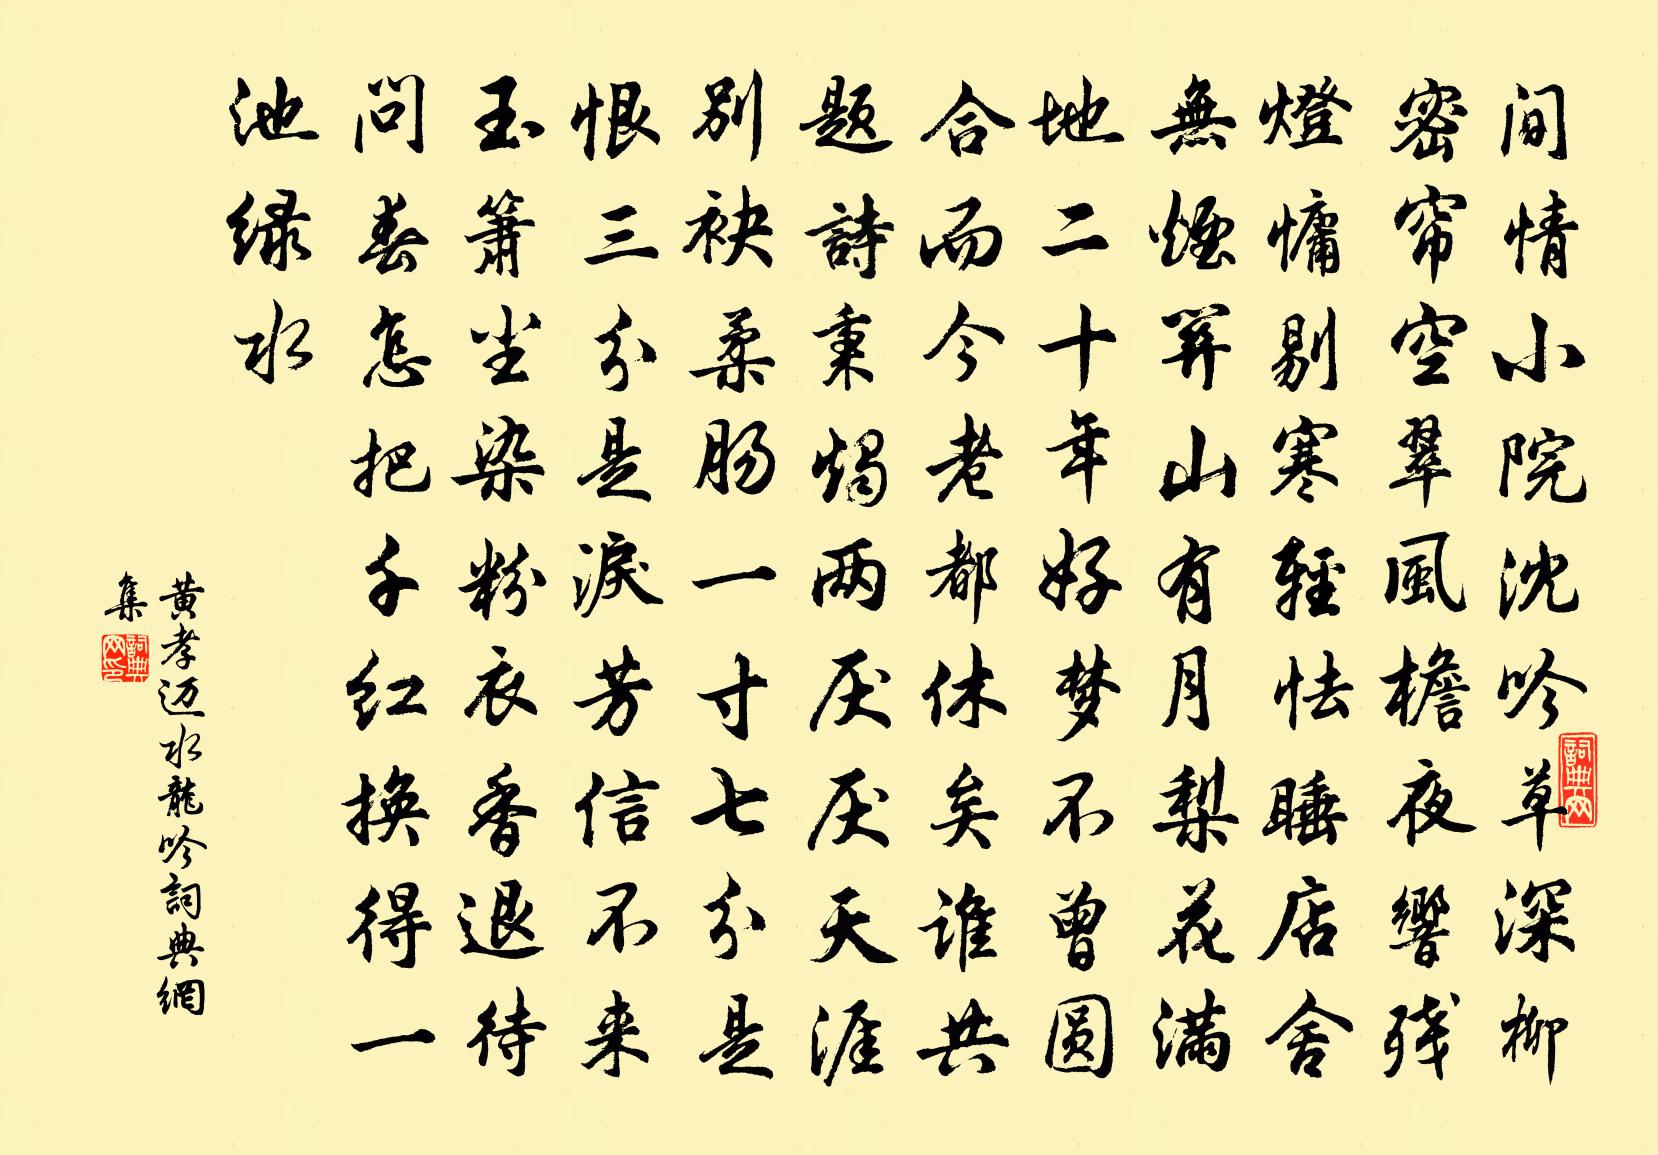 间情小院沈吟草深柳
密帘空翠風檐夜響残
燈慵剔寒輕怯睡店舍
無煙関山有月梨花滿
地二十年好梦不曾圆
合而今老都休矣谁共
题詩秉燭两厌厌天涯
别袂柔肠一寸七分是
恨三分是淚芳信不来
玉箫尘染粉衣香退待
问春怎把千红換得一
池绿水
黄孝迈水龍吟詞典網
集
詞典网
詞典网印